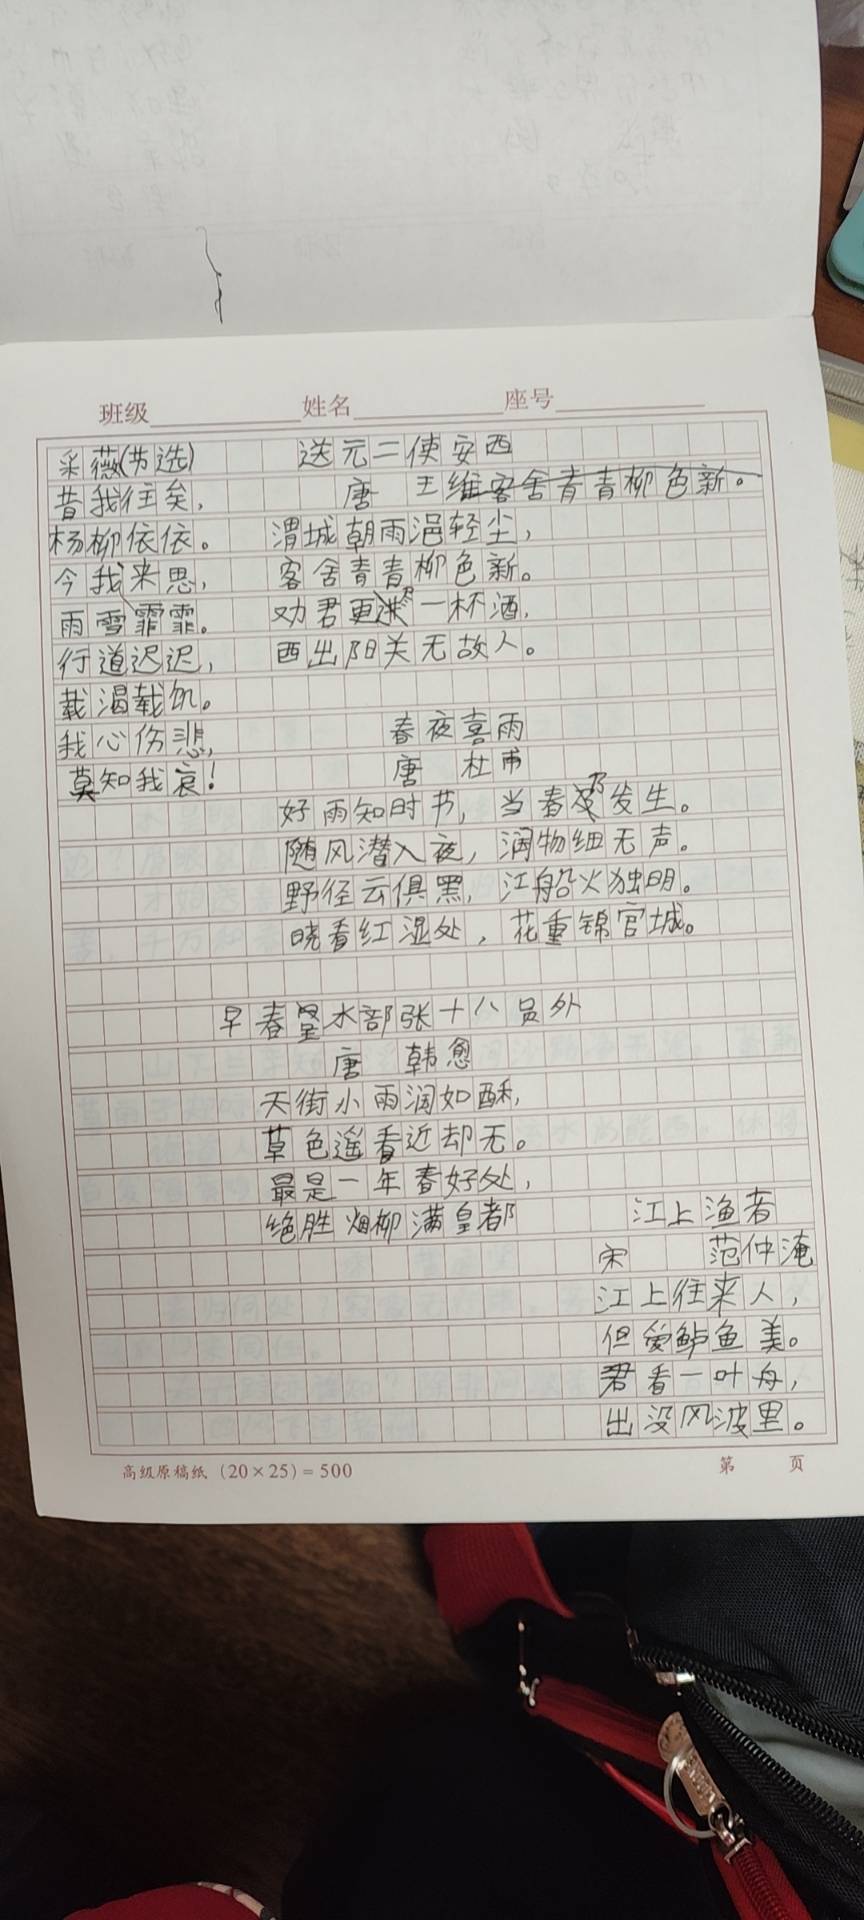 班级 姓名 座号
采薇(节选)
昔我往矣，
杨柳依依。
今我来思，
雨雪霏霏。
行道迟迟，
载渴载饥。
我心伤悲，
莫知我哀！
送元二使安西
唐 王维客舍青青柳色新。
渭城朝雨浥轻尘，
客舍青青柳色新。
劝君更尽一杯酒，
西出阳关无故人。
春夜喜雨
唐 杜甫
好雨知时节，当春乃发生。
随风潜入夜，润物细无声。
野径云俱黑，江船火独明。
晓看红湿处，花重锦官城。
早春呈水部张十八员外
唐 韩愈
天街小雨润如酥，
草色遥看近却无。
最是一年春好处，
绝胜烟柳满皇都
江上渔者
宋 范仲淹
江上往来人，
但爱鲈鱼美。
君看一叶舟，
出没风波里。
高级原稿纸 (20×25)=500 第 页